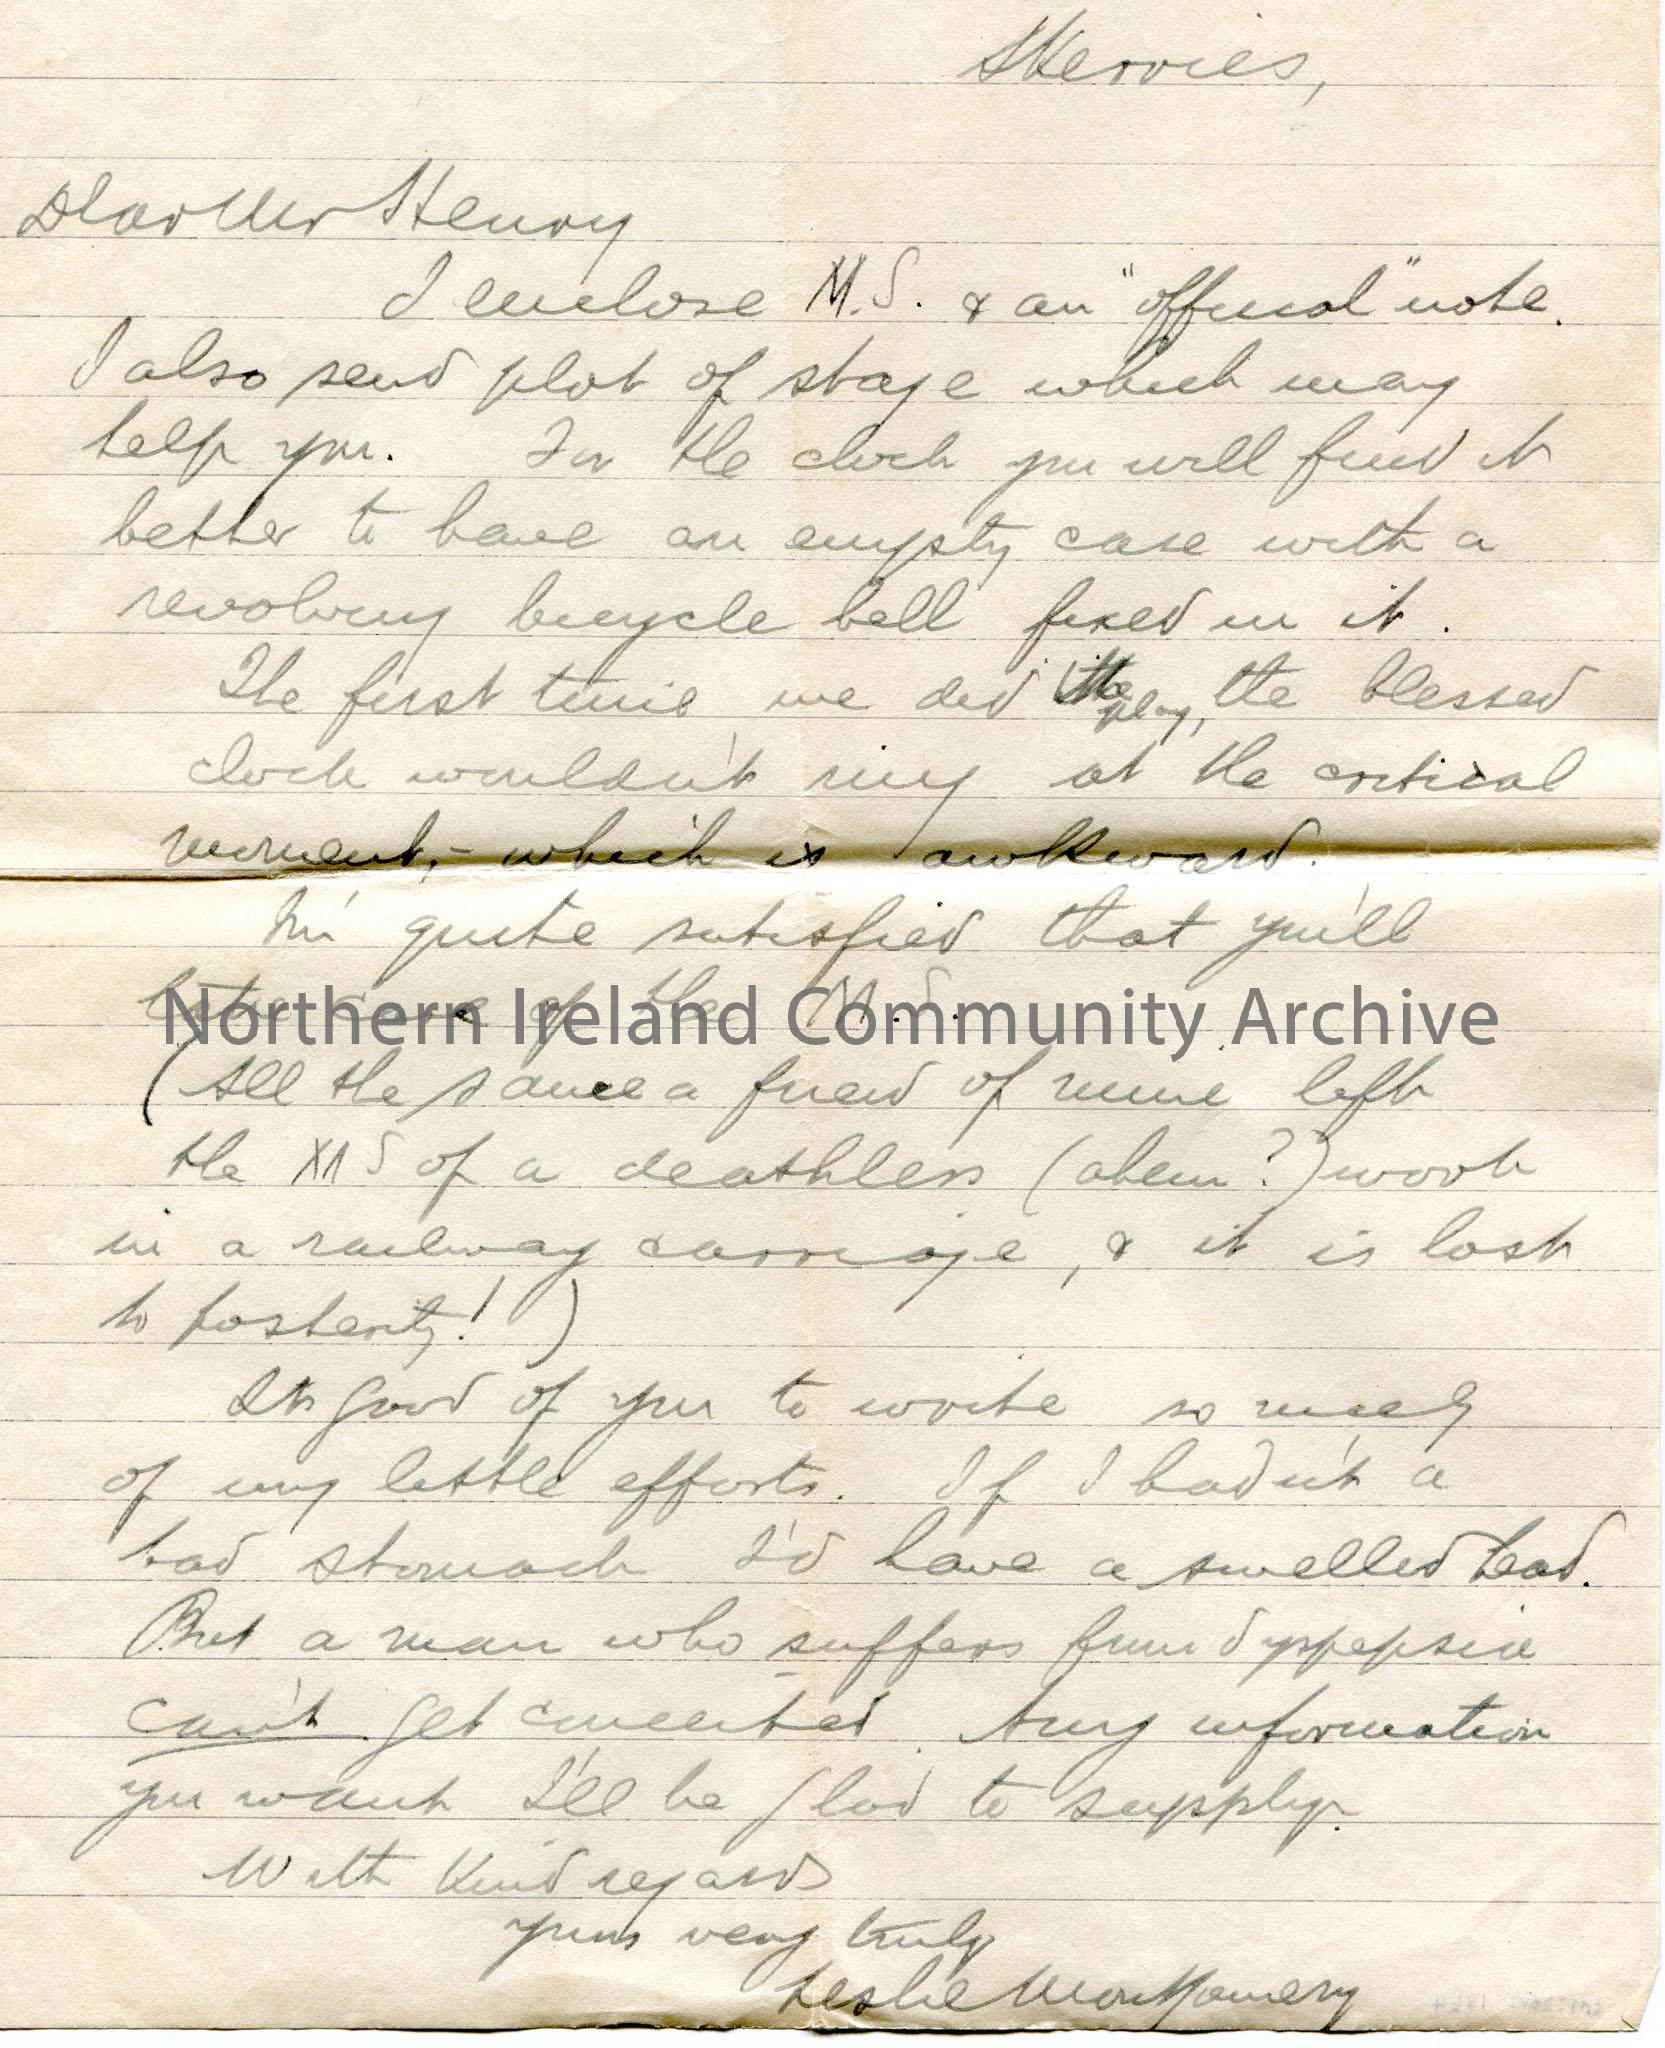 Skerries,
Dear Mr Henry
I enclose M.S. & an "official" note.
I also send plot of stage which may
help you. For the clock you will find it
better to have an empty case with a
revolving bicycle bell fixed in it.
The first time we did the play, the blessed
clock wouldn't ring at the critical
moment,- which is awkward.
I'm quite satisfied that you'll
take care of the M.S.
Northern Ireland Community Archive
(All the same a friend of mine left
the MS of a deathless (ahem?) work
in a railway carriage, & it is lost
to posterity! )
It's good of you to write so nicely
of my little efforts. If I hadn't a
bad stomach I'd have a swelled head.
But a man who suffers from dyspepsia
can't get conceited. Any information
you want I'll be glad to supply.
With kind regards
yours very truly
Leslie Montgomery